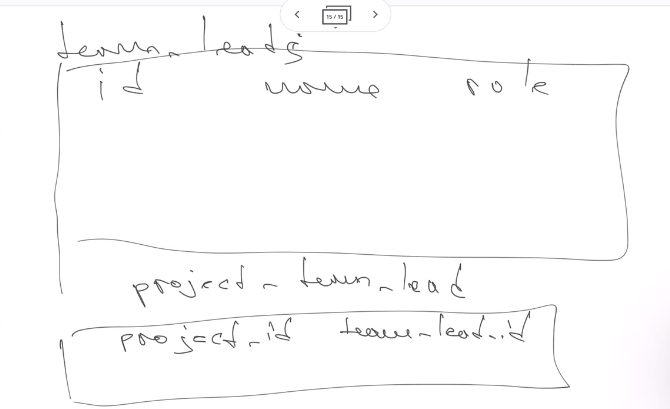 15 / 15
team_leads
id name role
project_team_lead
project_id team_lead_id